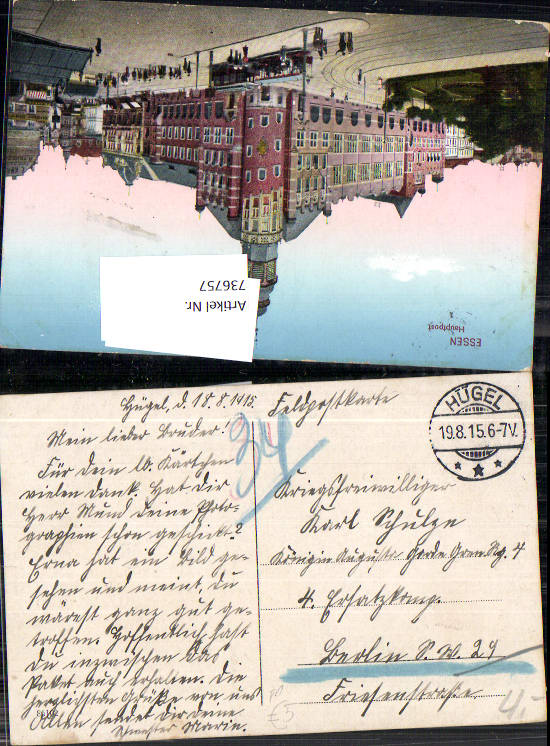 ESSEN
Hauptpost
Artikel Nr.
736757
Hügel, d. 18.8.1915.
Mein lieber Bruder!
Für dein lb. Kärtchen
vielen Dank. Hat dir
Herr Mund deine Photo-
graphien schon geschickt?
Erna hat ein Bild ge-
sehen und meint, du
wärest ganz gut ge-
troffen. Hoffentlich hast
du inzwischen das
Paket auch erhalten. Die
herzlichsten Grüße von uns
Allen sendet dir deine
Schwester Marie.
Feldpostkarte
HÜGEL
19.8.15.6-7V.
34
Kriegsfreiwilliger
Karl Schulze
Königin Augusta Garde Gren. Rg. 4
4. Ersatzkomp.
Berlin S.W. 29
Friesenstraße
4,-